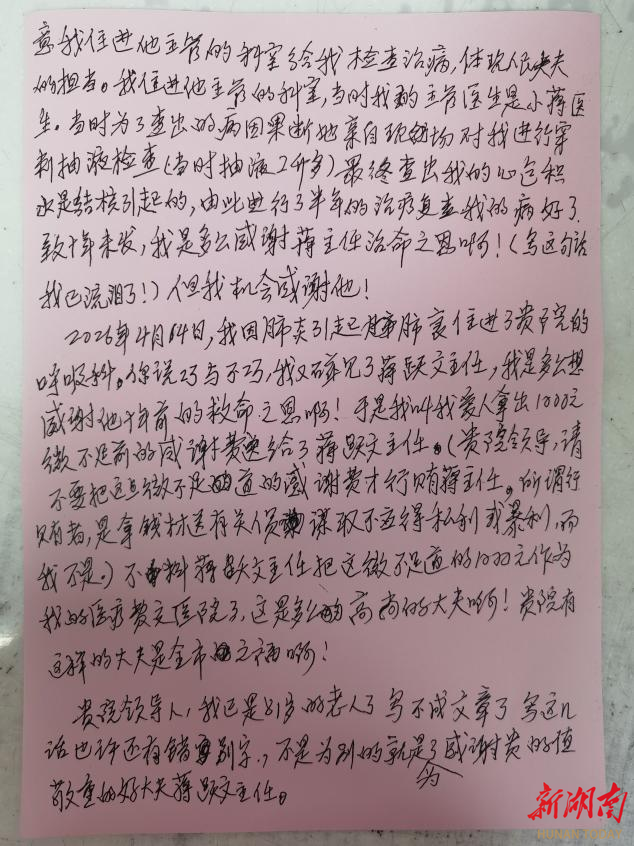 意我住进他主管的科室给我检查治病，体现人民大夫
的担当。我住进他主管的科室，当时我的主管医生是小蒋医
生。当时为了查出的病因果断地亲自现场对我进行穿
刺抽液检查（当时抽液2升多）最终查出我的心包积
水是结核引起的，由此进行了半年的治疗复查我的病好了
致十年未发，我是多么感谢蒋主任治命之恩啊！（写这句话
我已流泪了！）但我机会感谢他！
2026年4月14日，我因肺炎引起肺衰住进了贵院的
呼吸科。你说巧与不巧，我又碰见了蒋跃文主任，我是多么想
感谢他十年前的救命之恩啊！于是我叫我爱人拿出1000元
微不足前的感谢费送给了蒋跃文主任。（贵院领导，请
不要把这点微不足道的感谢费才行贿蒋主任。所谓行
贿者，是拿钱材送有关人员谋取不应得私利或暴利，而
我不是。）不料蒋跃文主任把这微不足道的1000元作为
我的医疗费交医院了，这是多么高尚的大夫啊！贵院有
这样的大夫是全市之福啊！
贵院领导人，我已是81岁的老人了写不成文章了写这几
话也许还有错别字.，不是为别的就是为了感谢贵的值
敬重的好大夫蒋跃文主任。
新湖南